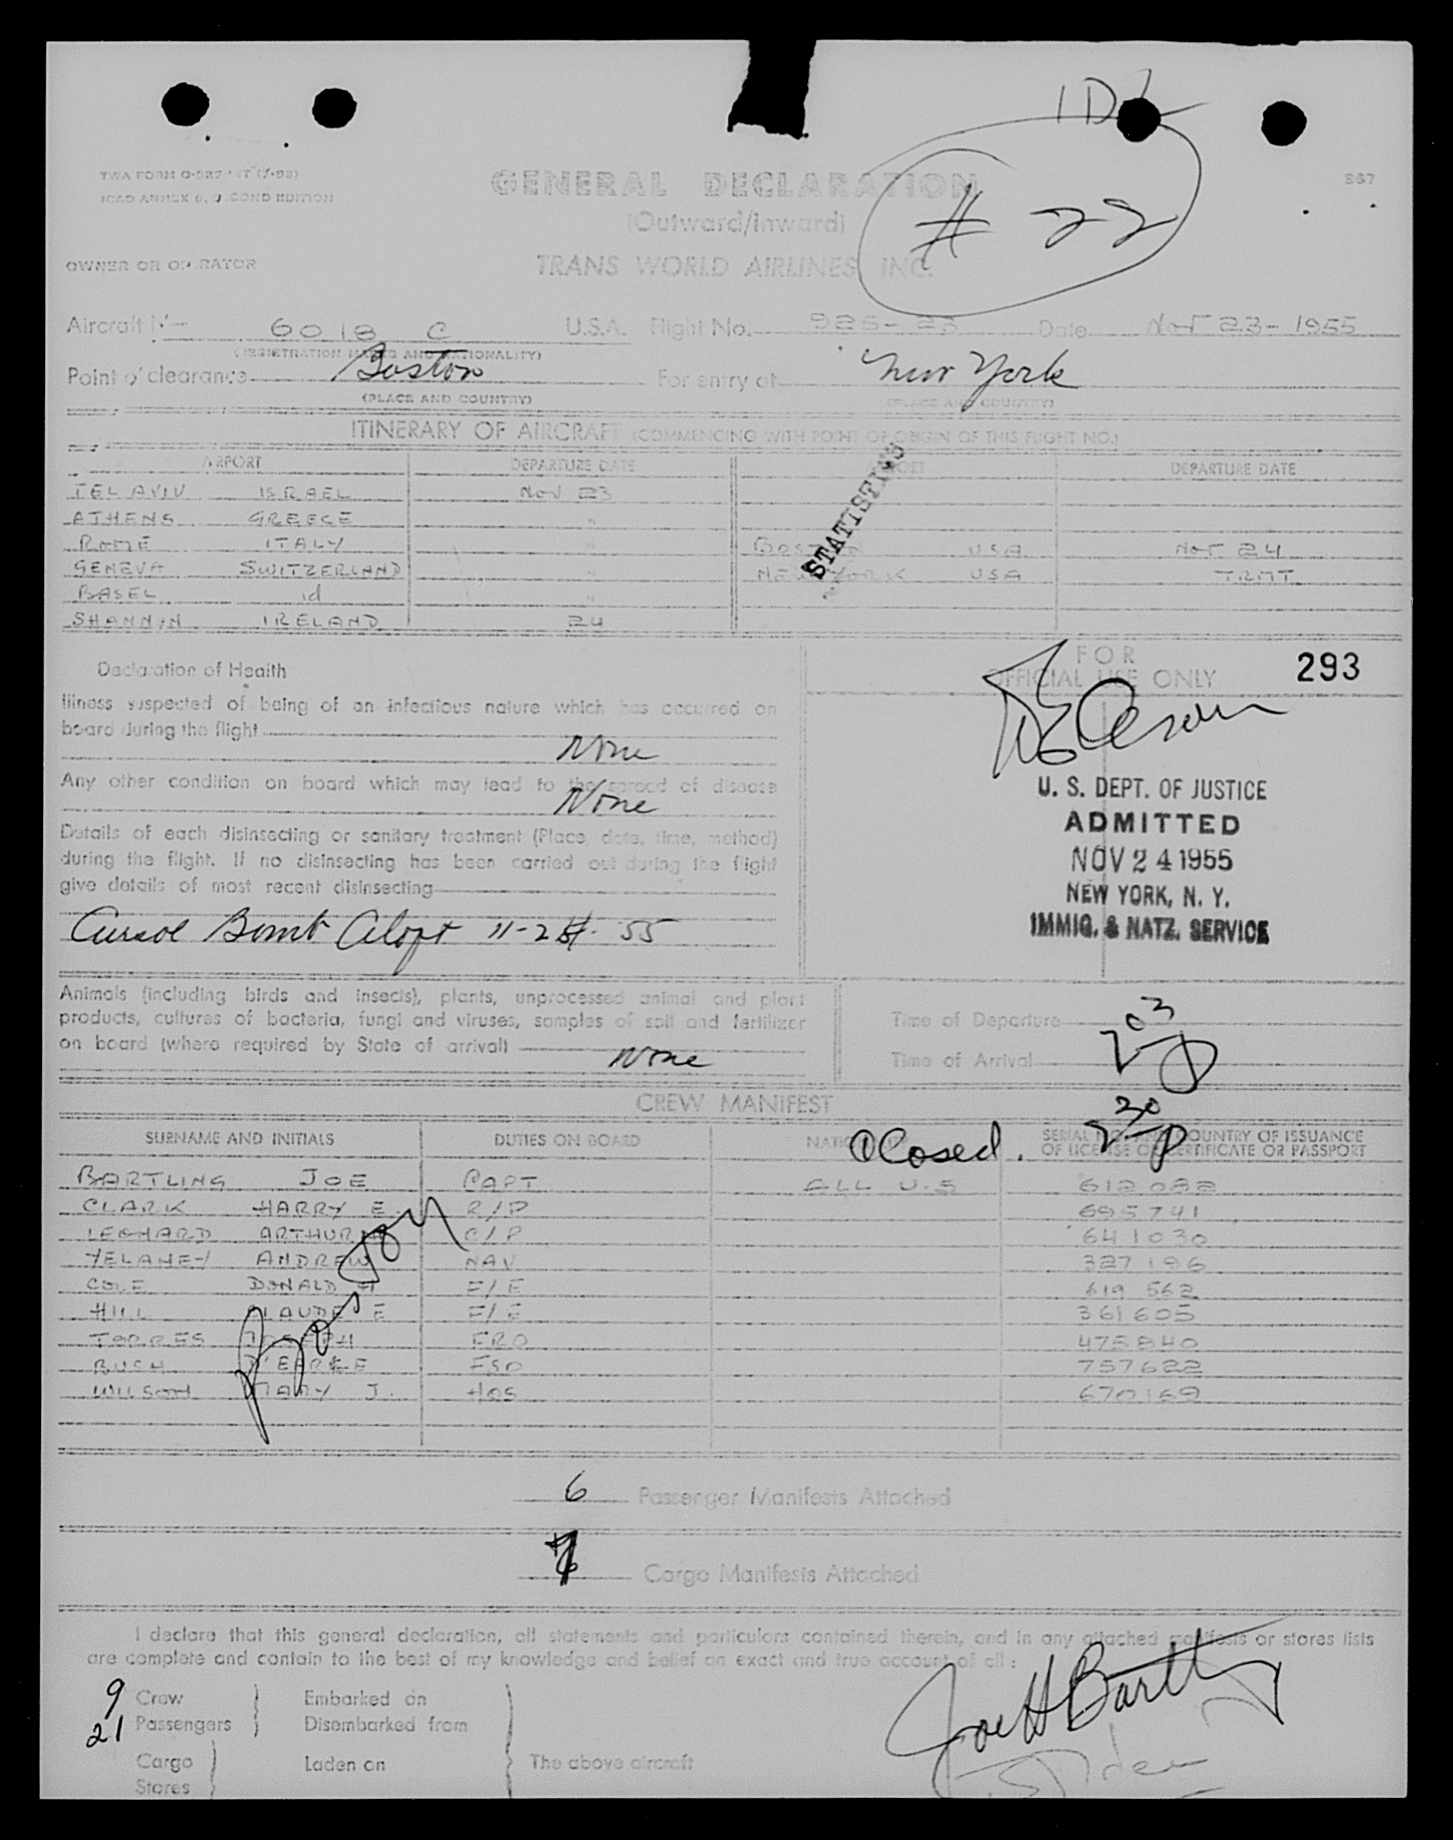 # 22
GENERAL DECLARATION
(Outward/Inward)
OWNER OR OPERATOR TRANS WORLD AIRLINES INC.
Aircraft 6018 C U.S.A. Flight No. Date Nov 23- 1955
(REGISTRATION MARKS AND NATIONALITY)
Point of clearance Boston For entry at New York
(PLACE AND COUNTRY) (PLACE AND COUNTRY)
ITINERARY OF AIRCRAFT (COMMENCING WITH POINT OF ORIGIN OF THIS FLIGHT NO.)
AIRPORT DEPARTURE DATE DEPARTURE DATE
TEL AVIV ISRAEL Nov 23
ATHENS GREECE "
ROME ITALY " BOSTON USA Nov 24
GENEVA SWITZERLAND " NEW YORK USA TRMT
BASEL id "
SHANNON IRELAND 24
STATISTICS
Declaration of Health
Illness suspected of being of an infectious nature which has occurred on
board during the flight
None
Any other condition on board which may lead to the spread of disease
None
Details of each disinsecting or sanitary treatment (Place, date, time, method)
during the flight. If no disinsecting has been carried out during the flight
give details of most recent disinsecting
Bomb
FOR
OFFICIAL USE ONLY 293
U. S. DEPT. OF JUSTICE
ADMITTED
NOV 24 1955
NEW YORK, N. Y.
IMMIG. & NATZ. SERVICE
Animals (including birds and insects), plants, unprocessed animal and plant
products, cultures of bacteria, fungi and viruses, samples of soil and fertilizer
on board (where required by State of arrival) None
Time of Departure
Time of Arrival
CREW MANIFEST
SURNAME AND INITIALS DUTIES ON BOARD
Closed.
BARTLING JOE CAPT ALL U.S 612082
CLARK HARRY E. R/P 695741
ARTHUR C/P 641030
ANDREW NAV 327196
COLE DONALD F/E 619562
HILL CLAUDE E F/E 361605
TORRES JOSEPH FRO 475840
BUSH FSO 757622
WILSON MARY J. HOS 670169
Boston
6 Passenger Manifests Attached
Cargo Manifests Attached
I declare that this general declaration, all statements and particulars contained therein, and in any attached manifests or stores lists
are complete and contain to the best of my knowledge and belief an exact and true account of all :
9 Crew Embarked on
21 Passengers Disembarked from
Cargo Laden on The above aircraft
Stores